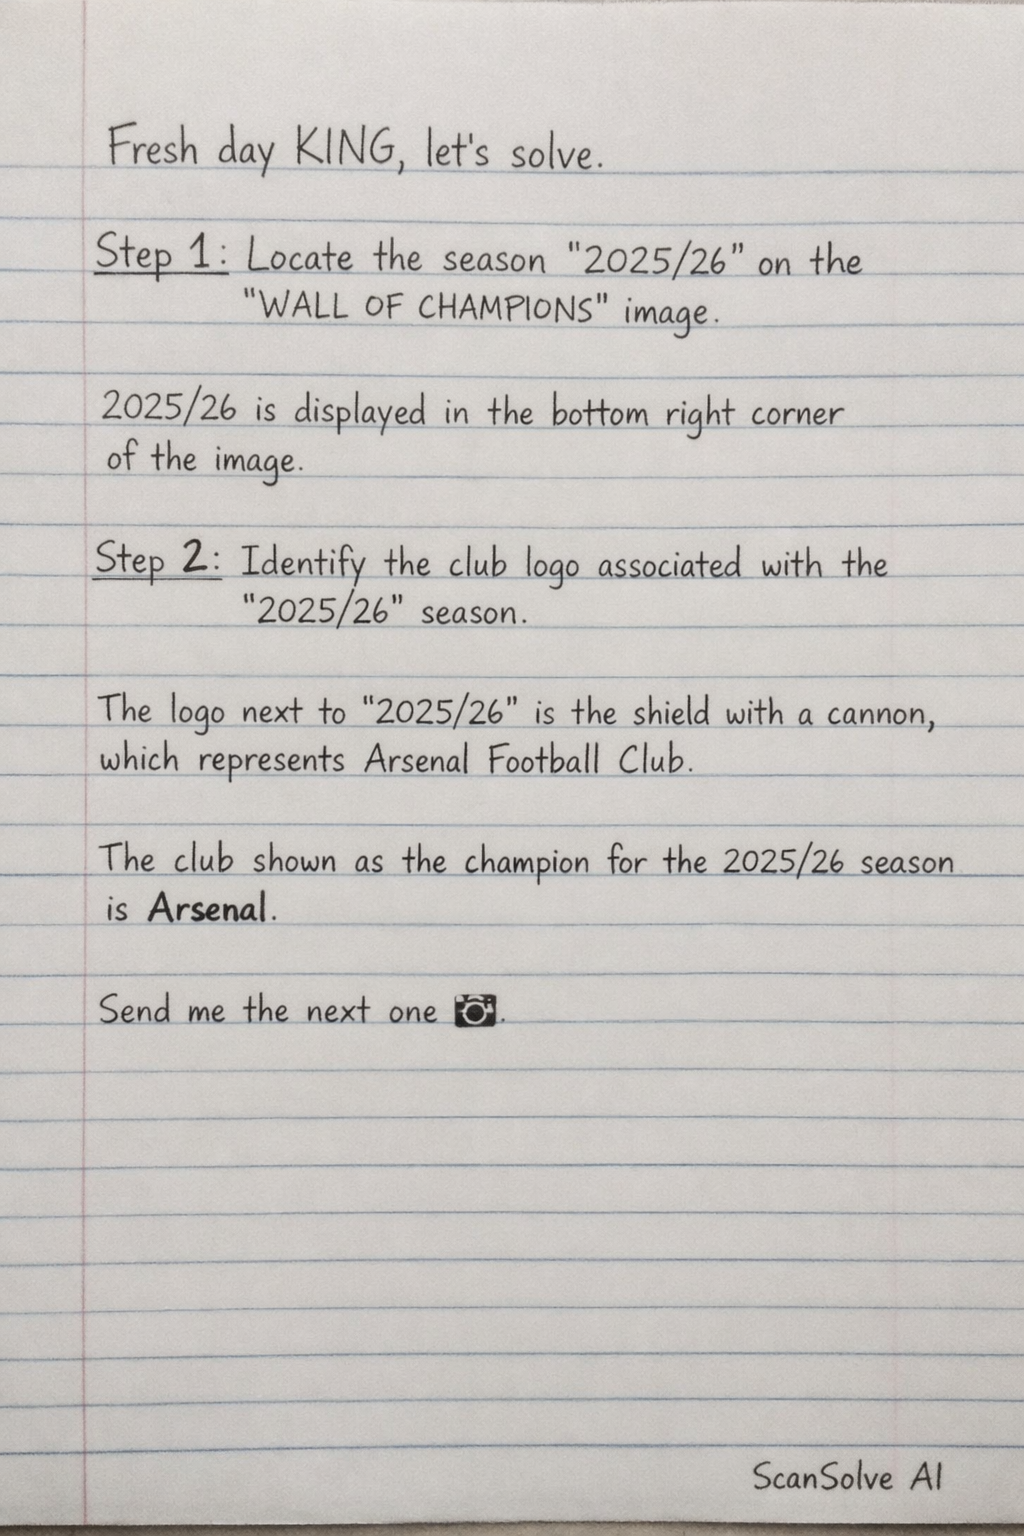 Fresh day KING, let's solve.
Step 1: Locate the season "2025/26" on the
"WALL OF CHAMPIONS" image.
2025/26 is displayed in the bottom right corner
of the image.
Step 2: Identify the club logo associated with the
"2025/26" season.
The logo next to "2025/26" is the shield with a cannon,
which represents Arsenal Football Club.
The club shown as the champion for the 2025/26 season
is Arsenal.
Send me the next one 📷.
ScanSolve AI